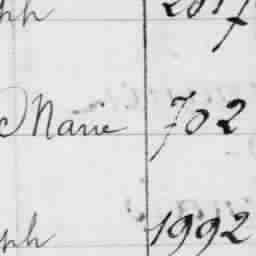 ph
Marie 702
ph 1992